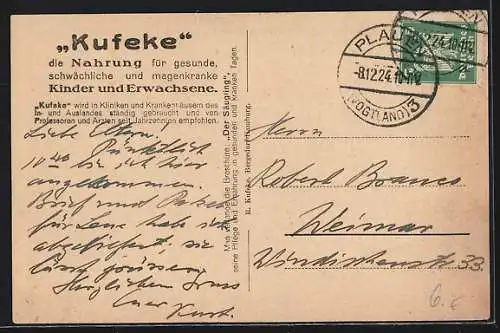 „Kufeke“
die Nahrung für gesunde,
schwächliche und magenkranke
Kinder und Erwachsene.
„Kufeke“ wird in Kliniken und Krankenhäusern des
In- und Auslandes ständig gebraucht und von
Professoren und Ärzten seit Jahrzehnten empfohlen.
Liebe Eltern! Pünktlich
10 40 bin ich hier
angekommen.
Brief und Paket
für Lene hab ich
abgeliefert, sie
lässt grüssen
Herzlichen Gruss
Euer Kurt.
Man verlange die Broschüre: „Der Säugling“,
seine Pflege und Ernährung in gesunden und kranken Tagen.
R. Kufeke, Bergedorf-Hamburg.
PLAUEN
-8.12.24.10-11V.
(VOGTLAND) 3
8.12.24.10-11V.
Herrn
Robert Branco
Weimar
Windischenstr. 33.
6.-